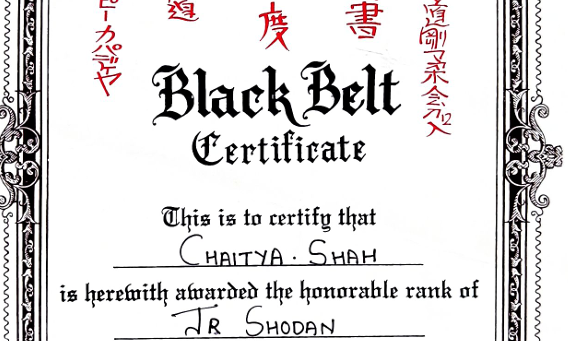 道剛柔会
書
度
ピーカパデヤ
Black Belt
Certificate
This is to certify that
CHAITYA. SHAH
is herewith awarded the honorable rank of
JR SHODAN